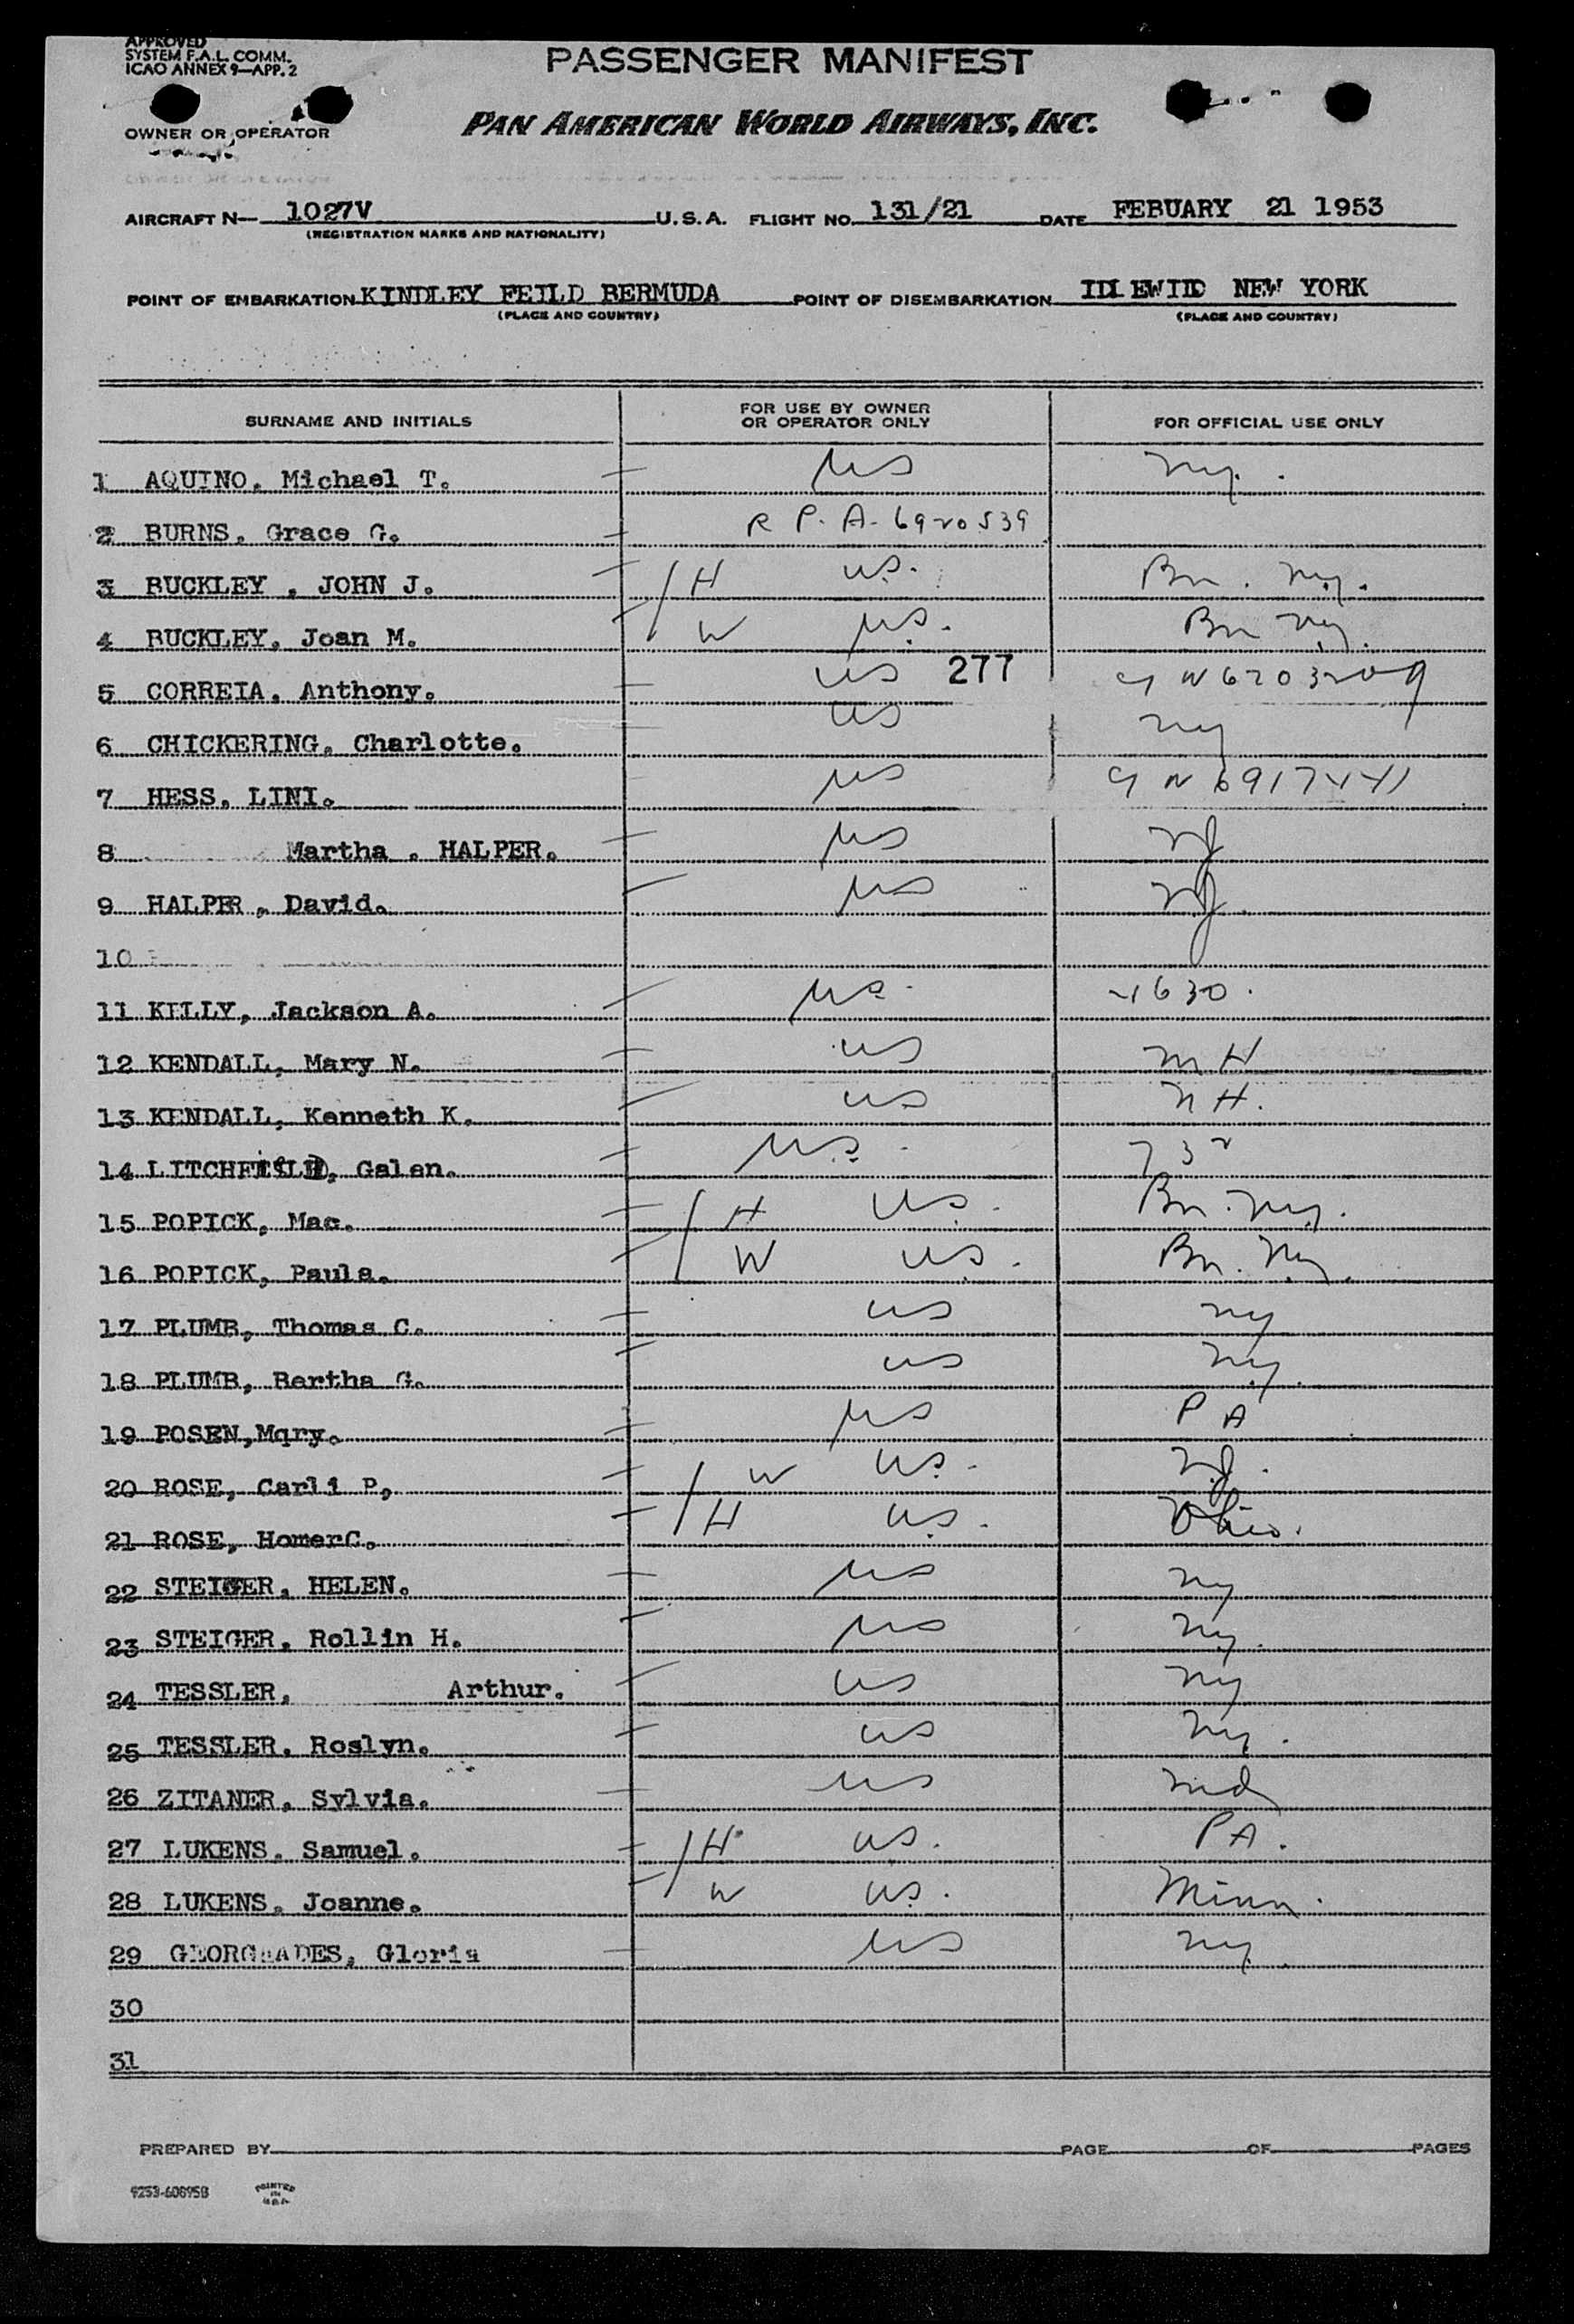 APPROVED
SYSTEM F.A.L. COMM.
ICAO ANNEX 9—APP. 2
PASSENGER MANIFEST
OWNER OR OPERATOR
PAN AMERICAN WORLD AIRWAYS, INC.
AIRCRAFT N— 1027V U.S.A. FLIGHT NO. 131/21 DATE FEBUARY 21 1953
(REGISTRATION MARKS AND NATIONALITY)
POINT OF EMBARKATION KINDLEY FEILD BERMUDA POINT OF DISEMBARKATION IDLEWILD NEW YORK
(PLACE AND COUNTRY) (PLACE AND COUNTRY)
SURNAME AND INITIALS FOR USE BY OWNER OR OPERATOR ONLY FOR OFFICIAL USE ONLY
1 AQUINO, Michael T. US NY.
2 BURNS, Grace G. R P. A- 6920539
3 BUCKLEY , JOHN J. H US. Bn. NY.
4 BUCKLEY, Joan M. W US. Bn NY.
5 CORREIA, Anthony. US 277
6 CHICKERING, Charlotte. US NY
7 HESS, LINI. US
8 Martha . HALPER. US NJ
9 HALPER , David. US NJ.
10
11 KELLY, Jackson A. US.
12 KENDALL, Mary N. US
13 KENDALL, Kenneth K. US NH.
14 LITCHFIELD, Galen. US. 732
15 POPICK, Mac. H US. Bn. NY.
16 POPICK, Paula. W US. Bn. NY.
17 PLUMB, Thomas C. US NY
18 PLUMB, Bertha G. US NY.
19 POSEN,Mqry. US PA
20 ROSE, Carli P, W US. NJ.
21 ROSE, HomerC. H US. Ohio.
22 STEIGER, HELEN. US NY
23 STEIGER, Rollin H. US NY.
24 TESSLER, Arthur. US NY
25 TESSLER, Roslyn. US NY.
26 ZITANER, Sylvia. US Md
27 LUKENS, Samuel. H US. PA.
28 LUKENS, Joanne. W US. Minn.
29 GEORGAADES, Gloria US NY.
30
31
PREPARED BY PAGE OF PAGES
9253-60895B PRINTED IN U.S.A.